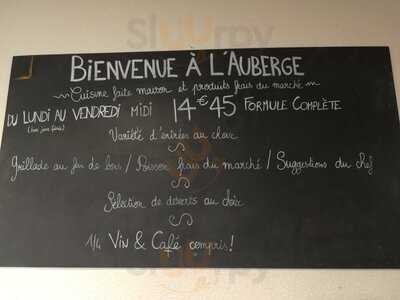 BIENVENUE À L'AUBERGE
Cuisine faite maison et produits frais du marché
DU LUNDI AU VENDREDI MIDI 14€45 FORMULE COMPLÈTE
(hors jours fériés)
Variété d'entrées au choix
Grillade au feu de bois / Poisson frais du marché / Suggestions du chef
Sélection de desserts au choix
1/4 VIN & Café compris!